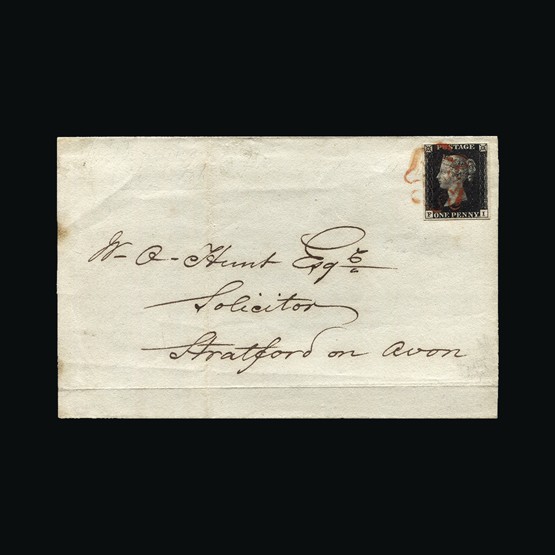 POSTAGE
F I
ONE PENNY
W- O- Hunt Esqre
Solicitor
Stratford on Avon